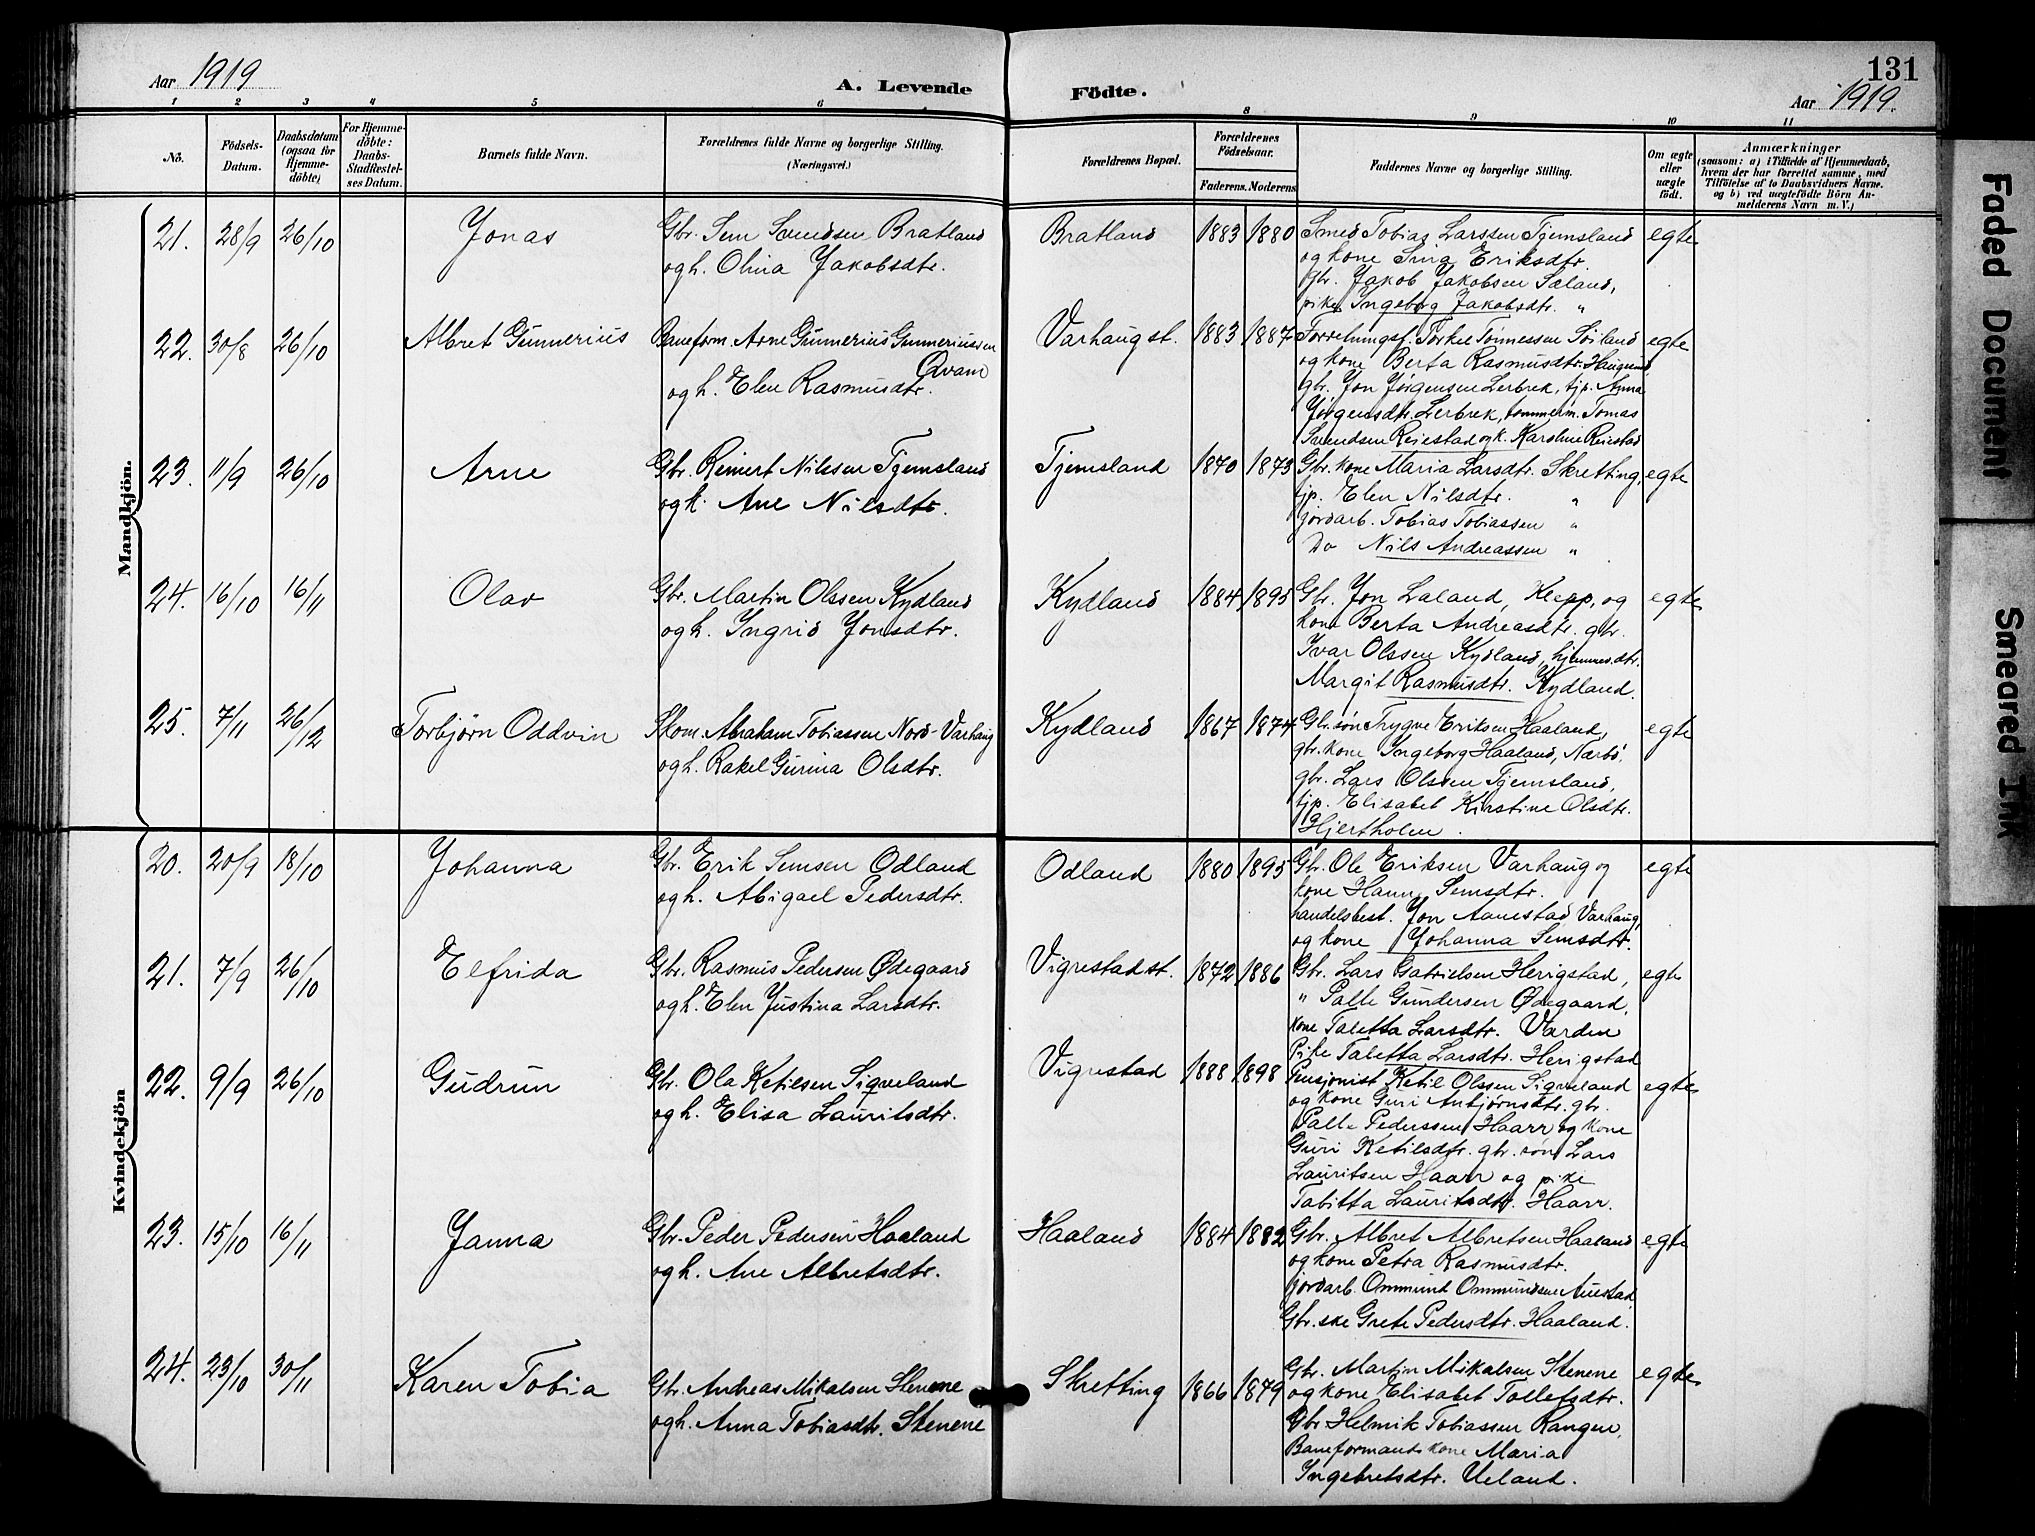 131
Aar 1919
A. Levende
Födte.
Aar 1919.
1 2 3 4 5 6 8 9 10 11
No.
Födsels-
Datum.
Daabsdatum
(ogsaa for
Hjemme-
döbte)
For Hjemme-
döbte:
Daabs-
Stadfæstel-
ses Datum.
Barnets fulde Navn.
Forældrenes fulde Navne og borgerlige Stilling.
(Næringsvei.)
Forældrenes Bopæl.
Forældrenes
Födselsaar.
Faderens. Moderens
Faddernes Navne og borgerlige Stilling.
Om ægte
eller
uægte
födt.
Anmærkninger
(saasom: a) i Tilfælde af Hjemmedaab,
hvem der har forrettet samme, med
Tilföielse af to Daabsvidners Navne.
og b) ved uægtefödte Börn An-
melderens Navn m. V.)
Mandkjön.
21. 28/9 26/10 Jonas Gbr. Sem Svendsen Bratland Bratland 1883 1880 Smed Tobias Larssen Tjemsland egte
og h. Olina Jakobsdtr. og kone Sina Eriksdtr.
gbr. Jakob Jakobsen Sæland,
pike Ingeborg Jakobsdtr. "
22. 30/8 26/10 Albret Gunnerius Baneform. Arne Gunnerius Gunneriussen Varhaug st. 1883 1887 Forretningsf. Torkel Tønnessen Søiland egte
Qvam
og h. Elen Rasmusdtr. og kone Berta Rasmusdtr.
gbr. Jon Jørgensen Lerbrek, tjp. Anna
Jørgensdtr. Lerbrek, tømmerm. Tomas
Svendsen Reiestad og k. Karoline Reiestad
23. 11/9 26/10 Arne Gbr. Reinert Nilsen Tjemsland Tjemsland 1870 1873 Gbr. kone Maria Larsdtr. Skretting, egte
og h. Ane Nilsdtr. tjp. Elen Nilsdtr. "
jordarb. Tobias Tobiassen "
Do Nils Andreassen "
24. 16/10 16/11 Olav Gbr. Martin Olssen Kydland Kydland 1884 1895 Gbr. Jon Laland, Klepp, og egte
og h. Ingrid Jonsdtr. kone Berta Andreasdtr. gbr.
Ivar Olssen Kydland, hjemmev. dtr.
Margit Rasmusdtr. Kydland.
25. 7/11 26/12 Torbjørn Oddvin Skom. Abraham Tobiassen Nord-Varhaug Kydland 1867 1874 Gbr. søn Trygve Eriksen Haaland, egte
og h. Rakel Gurina Olsdtr. gbr. kone Ingeborg Haaland, Nærbø,
gbr. Lars Olssen Tjemsland,
tjp. Elisabet Kirstine Olsdtr.
Hjertholm.
Kvindekjön
20. 20/9 18/10 Johanna Gbr. Erik Semsen Odland Odland 1880 1895 Gbr. Ole Eriksen Varhaug og egte
og h. Abigael Pedersdtr. kone Hanna Semsdtr.
handelsbest. Jon Aanestad Varhaug,
og kone Johanna Semsdtr.
21. 7/9 26/10 Elfrida Gbr. Rasmus Pedersen Ødegaard Vigrestad st. 1872 1886 Gbr. Lars Gabrielsen Herigstad, egte
og h. Elen Justina Larsdtr. " Palle Gundersen Ødegaard,
kone Taletta Larsdtr. Varden
Pike Taletta Larsdtr. Herigstad
22. 9/9 26/10 Gudrun Gbr. Ola Ketilsen Sigveland Vigrestad 1888 1898 Pensjonist Ketil Olssen Sigveland egte
og h. Elisa Lauritsdtr. og kone Guri Anbjørnsdtr. gbr.
Palle Pederssen Haarr og kone
Guri Ketilsdtr. gbr. søn Lars
Lauritsen Haarr og pike
Tabitta Lauritsdtr. Haarr.
23. 15/10 16/11 Janna Gbr. Peder Pedersen Haaland Haaland 1884 1882 Gbr. Albret Albretsen Haaland egte
og h. Ane Albretsdtr. og kone Petra Rasmusdtr.
jordarb. Ommund Ommundsen Auestad,
Gbr. ske Grete Pedersdtr. Haaland.
24. 23/10 30/11 Karen Tobia Gbr. Andreas Mikalsen Stenene Skretting 1866 1879 Gbr. Martin Mikalsen Stenene egte
og h. Anna Tobiasdtr. Stenene og kone Elisabet Tollefsdtr.
Gbr. Helmik Tobiassen Rangen,
Baneformands kone Maria
Ingebretsdtr. Ueland.
Faded Document
Smeared Ink